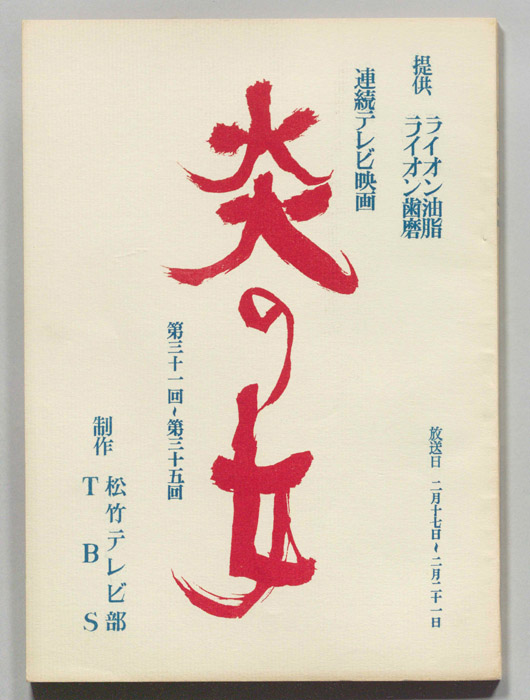 提供、ライオン油脂
ライオン歯磨
連続テレビ映画
炎の女
第三十一回~第三十五回
放送日 二月十七日~二月二十一日
制作 松竹テレビ部
TBS